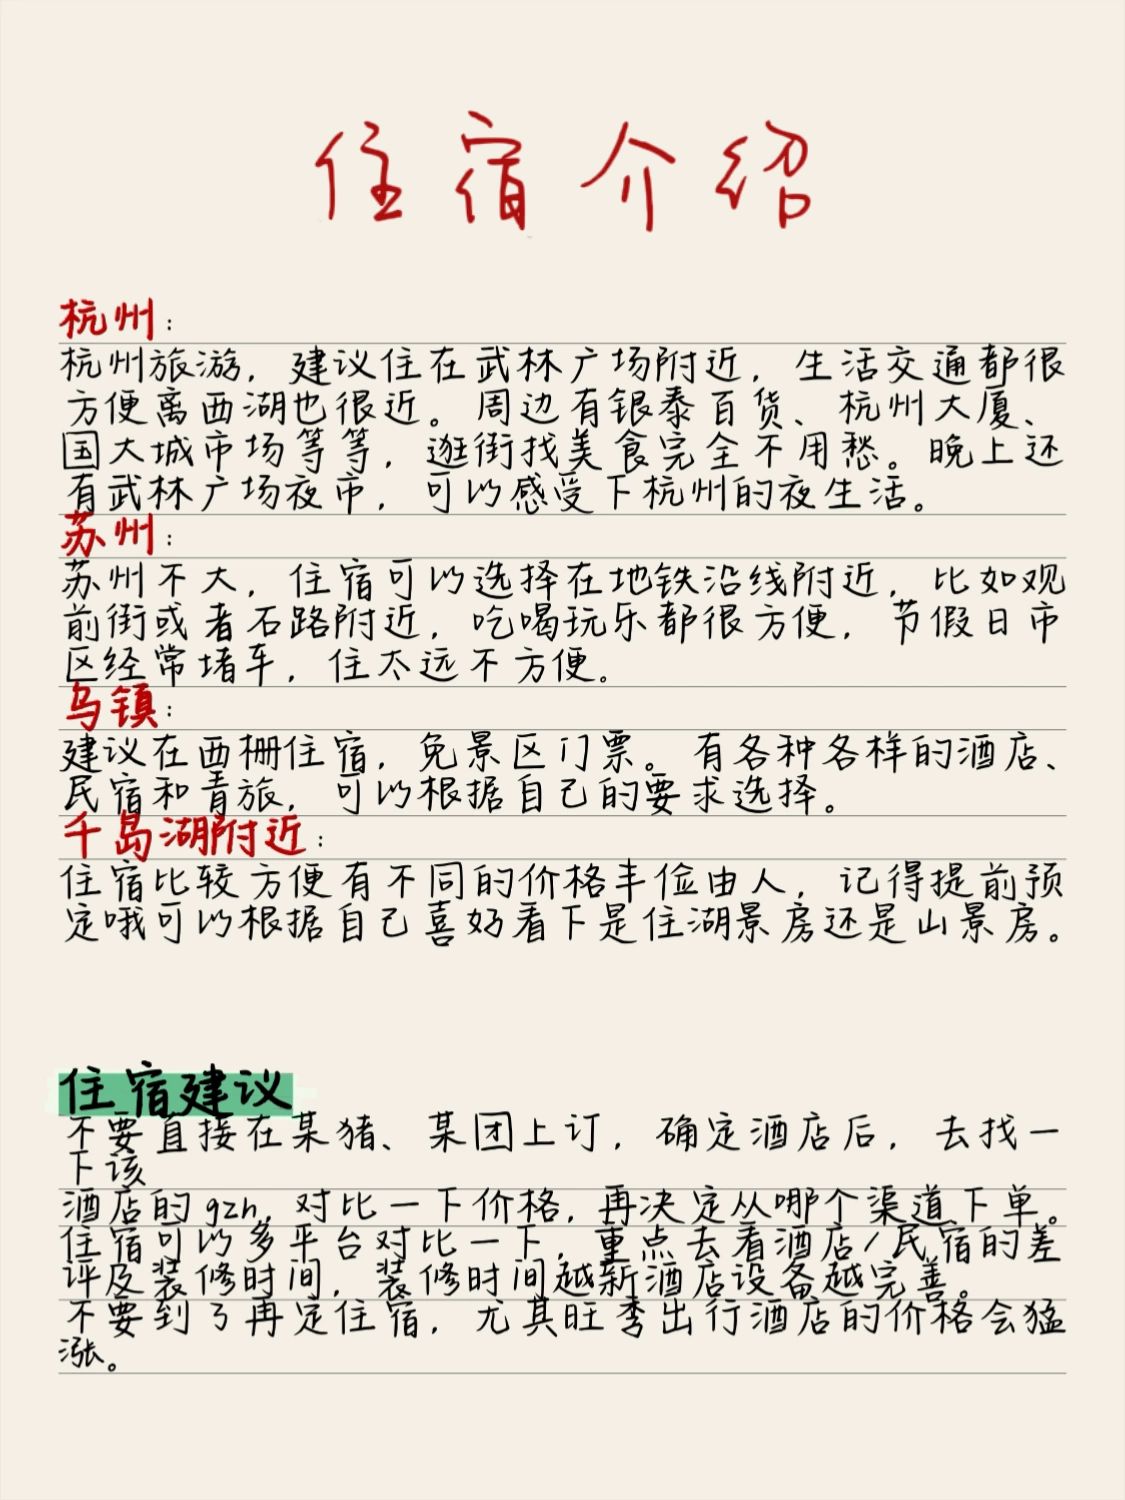 住宿介绍
杭州：
杭州旅游，建议住在武林广场附近，生活交通都很
方便离西湖也很近。周边有银泰百货、杭州大厦、
国大城市场等等，逛街找美食完全不用愁。晚上还
有武林广场夜市，可以感受下杭州的夜生活。
苏州：
苏州不大，住宿可以选择在地铁沿线附近，比如观
前街或者石路附近，吃喝玩乐都很方便，节假日市
区经常堵车，住太远不方便。
乌镇：
建议在西栅住宿，免景区门票。有各种各样的酒店、
民宿和青旅，可以根据自己的要求选择。
千岛湖附近：
住宿比较方便有不同的价格丰俭由人，记得提前预
定哦可以根据自己喜好看下是住湖景房还是山景房。
住宿建议
不要直接在某猪、某团上订，确定酒店后，去找一
下该
酒店的gzh，对比一下价格，再决定从哪个渠道下单。
住宿可以多平台对比一下，重点去看酒店/民宿的差
评及装修时间，装修时间越新酒店设备越完善。
不要到了再定住宿，尤其旺季出行酒店的价格会猛
涨。